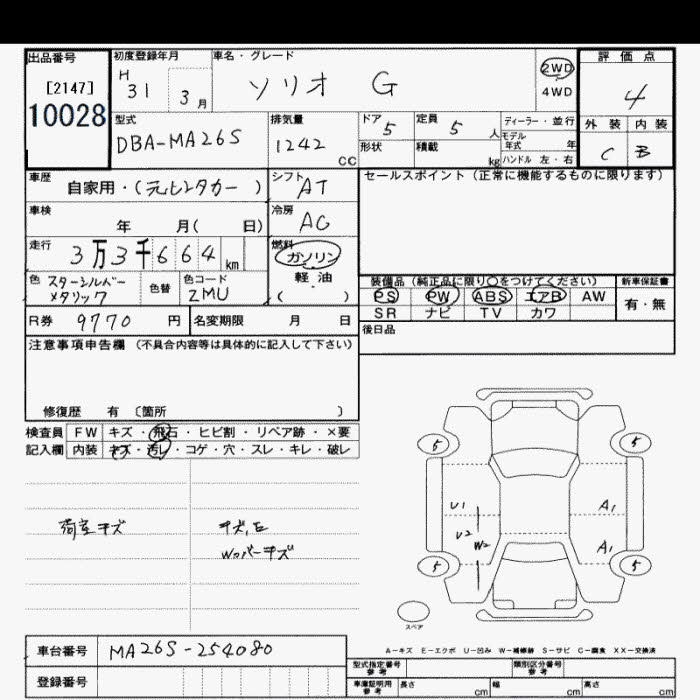 出品番号
[2147]
10028
初度登録年月
H 31 3 月
車名・グレード
ソリオ G
2WD
4WD
評 価 点
4
外 装 内 装
C B
型式
DBA-MA26S
排気量
1242 CC
ドア 5
定員 5 人
形状
積載 kg
ディーラー・並行
モデル年式 年
ハンドル 左・右
車歴
自家用・(元レンタカー)
シフト
AT
セールスポイント(正常に機能するものに限ります)
車検
年 月( 日)
冷房
AC
走行
3万3千664 km
燃料
ガソリン
軽・油
( )
色 スターシルバー
メタリック
色替
色コード
ZMU
装備品(純正品に限り○をつけてください)
新車保証書
PS PW ABS エアB AW
SR ナビ TV カワ
有・無
R券 9770 円
名変期限 月 日
後日品
注意事項申告欄(不具合内容等は具体的に記入して下さい)
修復歴 有 〔箇所 〕
検査員 FW キズ・飛石・ヒビ割・リペア跡・×要
記入欄 内装 キズ・汚レ・コゲ・穴・スレ・キレ・破レ
荷室キズ
Wカバーキズ
5 5
U1 A1
U2
W2 A1
5 5
スペア
A-キズ E-エクボ U-凹み W-補修跡 S-サビ C-腐食 XX-交換済
車台番号 MA26S-254080
登録番号
型式指定番号
参考
類別区分番号
参考
車庫証明用
参考
長さ cm 幅 cm 高さ cm